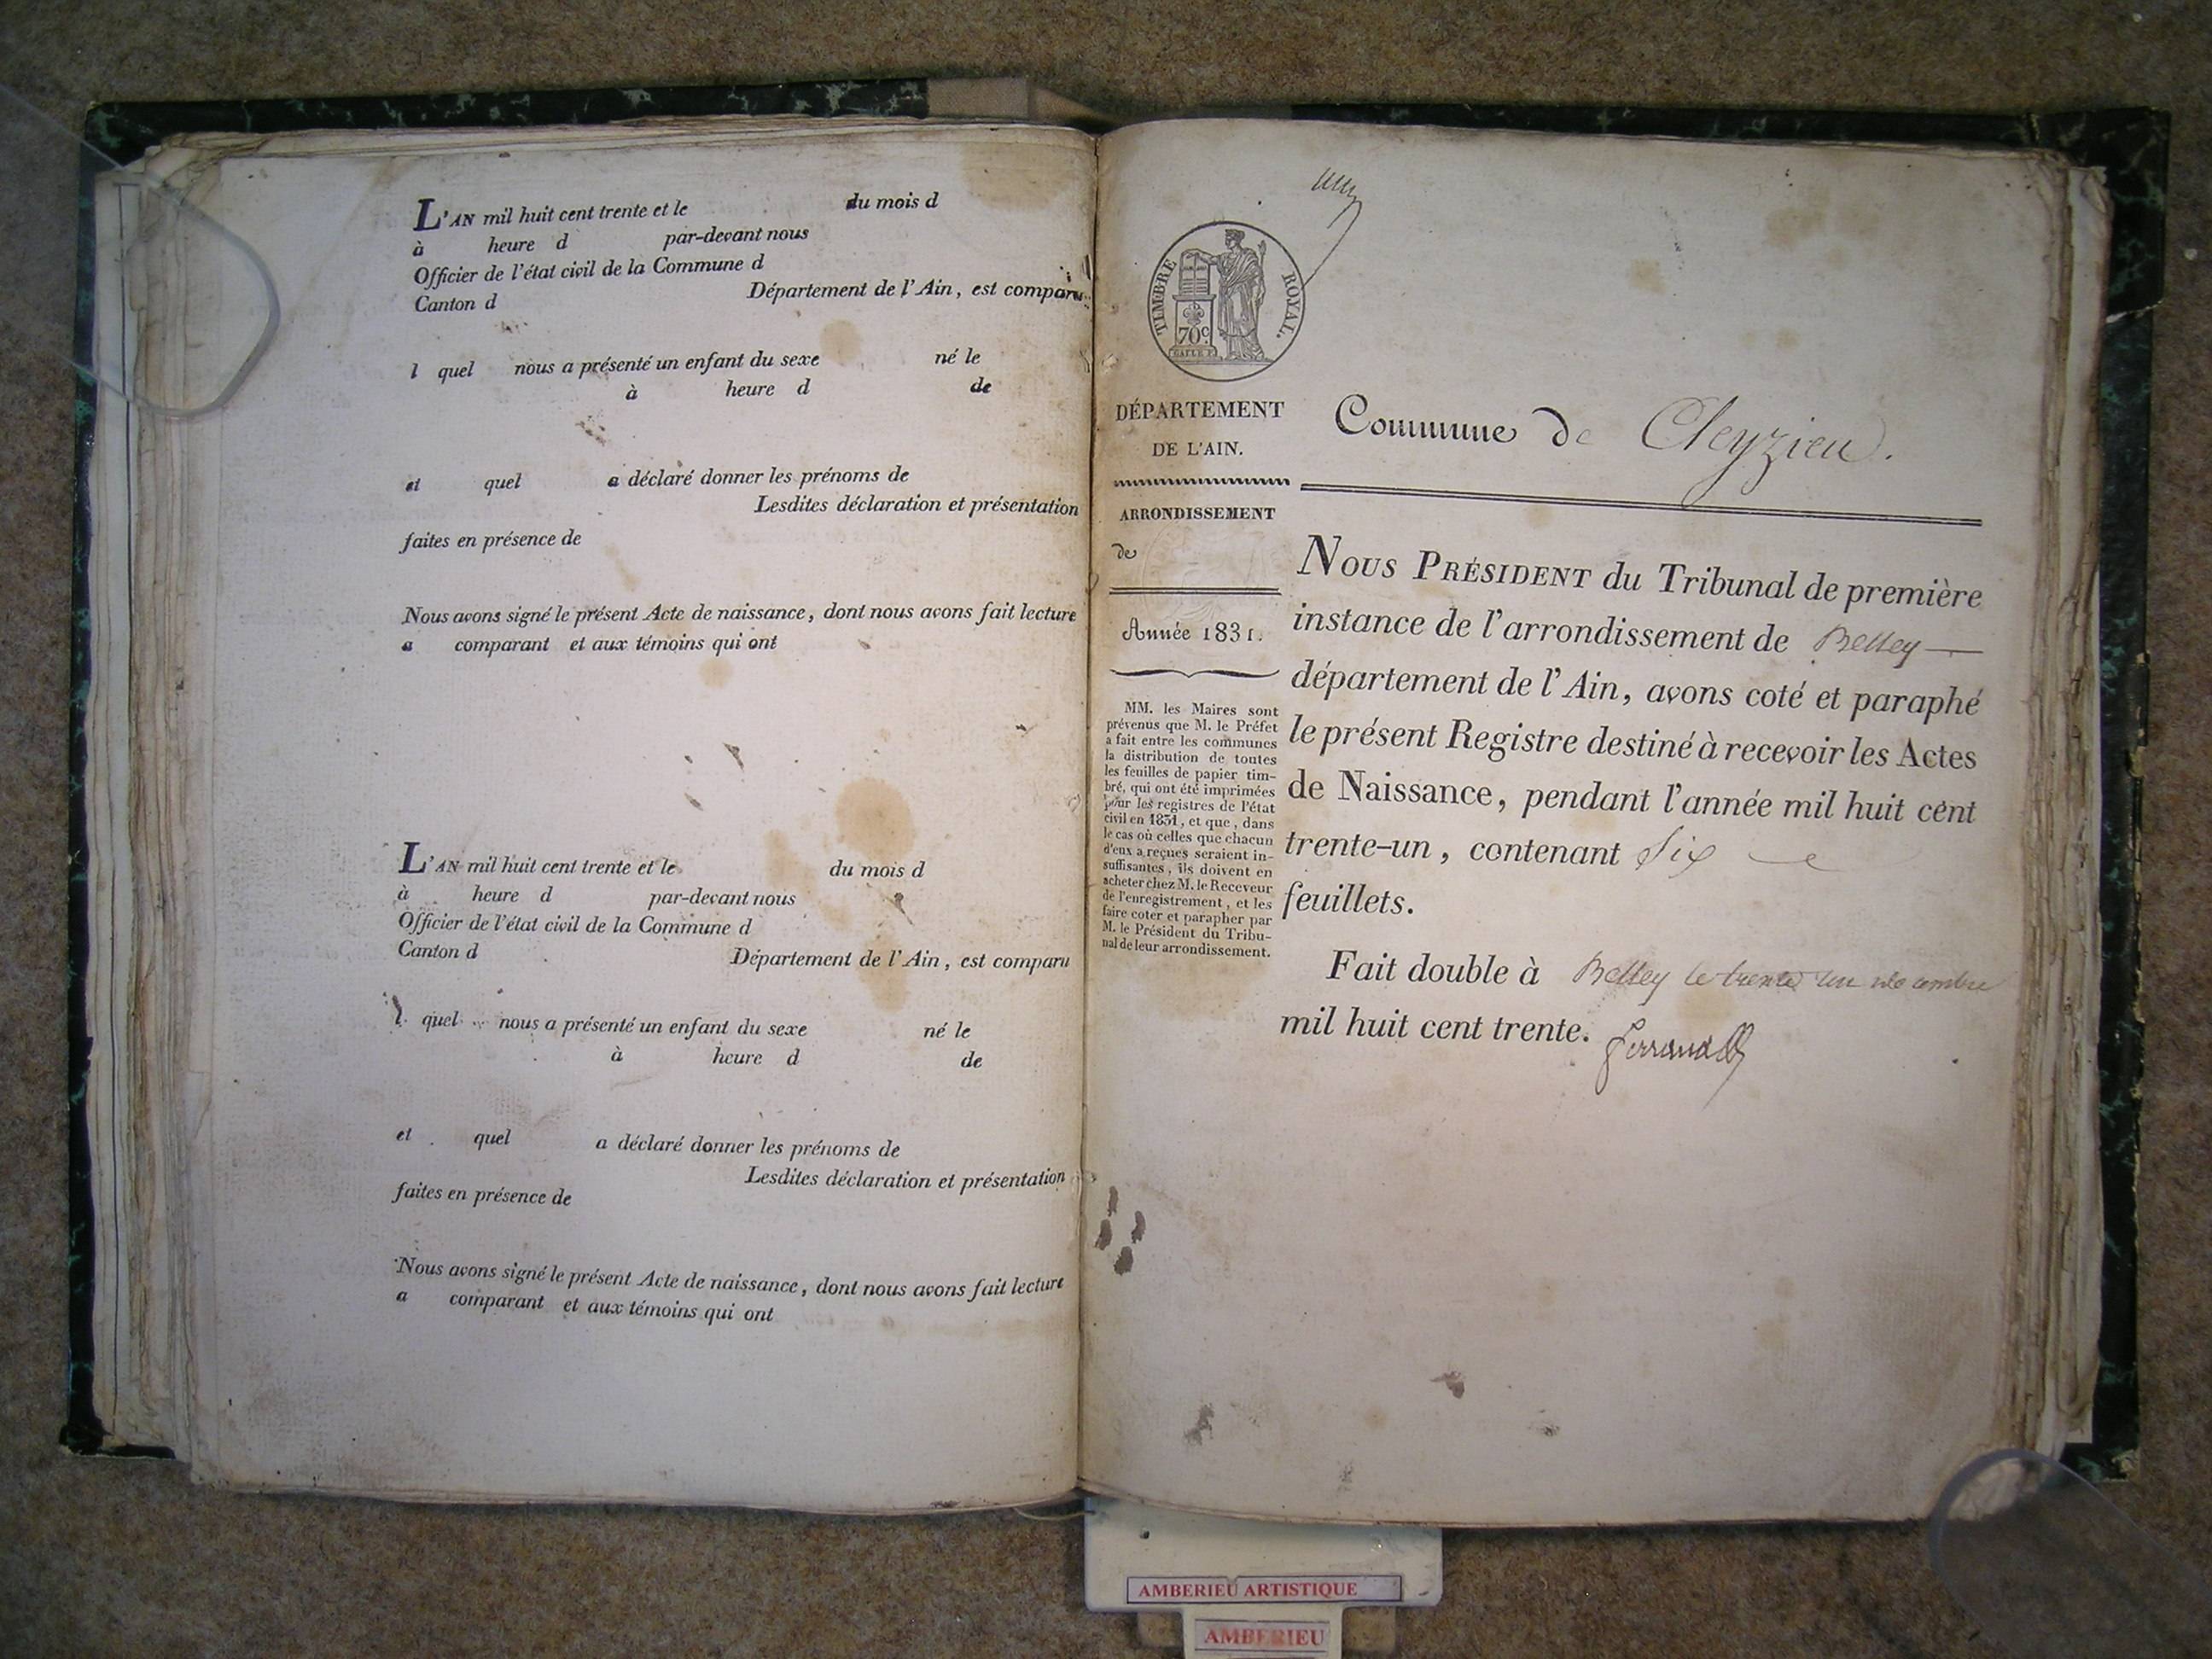 L'AN mil huit cent trente et le du mois d
à heure d par-devant nous
Officier de l'état civil de la Commune d
Canton d Département de l'Ain, est comparu
l quel nous a présenté un enfant du sexe né le
à heure d de
et quel a déclaré donner les prénoms de
Lesdites déclaration et présentation
faites en présence de
Nous avons signé le présent Acte de naissance, dont nous avons fait lecture
a comparant et aux témoins qui ont
L'AN mil huit cent trente et le du mois d
à heure d par-devant nous
Officier de l'état civil de la Commune d
Canton d Département de l'Ain, est comparu
l quel nous a présenté un enfant du sexe né le
à heure d de
et quel a déclaré donner les prénoms de
Lesdites déclaration et présentation
faites en présence de
Nous avons signé le présent Acte de naissance, dont nous avons fait lecture
a comparant et aux témoins qui ont
TIMBRE ROYAL.
70c.
DÉPARTEMENT
DE L'AIN.
ARRONDISSEMENT
de
Année 1831.
MM. les Maires sont
prévenus que M. le Préfet
a fait entre les communes
la distribution de toutes
les feuilles de papier tim-
bré, qui ont été imprimées
pour les registres de l'état
civil en 1831, et que, dans
le cas où celles que chacun
d'eux a reçues seraient in-
suffisantes, ils doivent en
acheter chez M. le Receveur
de l'enregistrement, et les
faire coter et parapher par
M. le Président du Tribu-
nal de leur arrondissement.
Commune de Cleyzieu.
NOUS PRÉSIDENT du Tribunal de première
instance de l'arrondissement de Belley
département de l'Ain, avons coté et paraphé
le présent Registre destiné à recevoir les Actes
de Naissance, pendant l'année mil huit cent
trente-un, contenant Six
feuillets.
Fait double à Belley le trente un décembre
mil huit cent trente.
Ferrand
AMBERIEU ARTISTIQUE
AMBERIEU